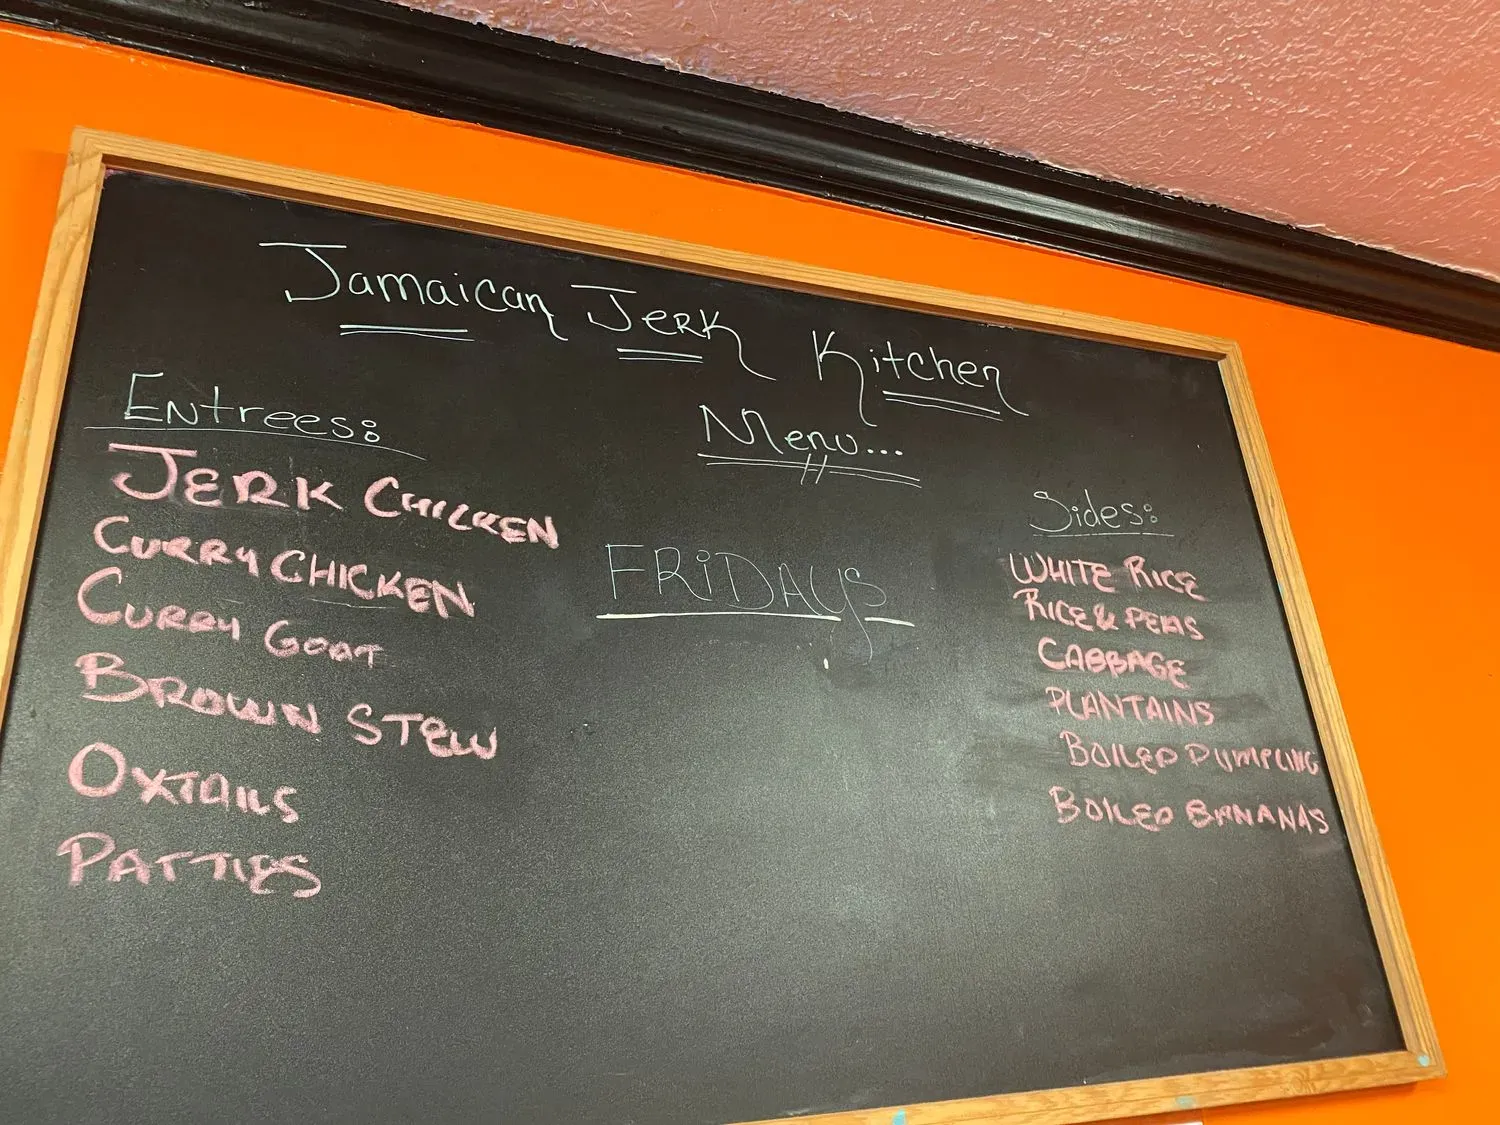 Jamaican Jerk Kitchen
Menu...
Entrees:
JERK CHICKEN
CURRY CHICKEN
CURRY GOAT
BROWN STEW
OXTAILS
PATTIES
FRiDAYS
Sides:
WHITE RICE
RICE & PEAS
CABBAGE
PLANTAINS
BOILED DUMPLING
BOILED BANANAS